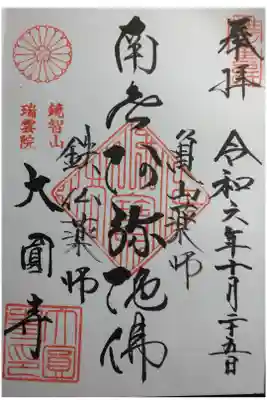 奉拝
令和六年十月二十五日
山薬師
南無阿弥陀佛
仏薬師
鏡智山
瑞雲院
大圓寺